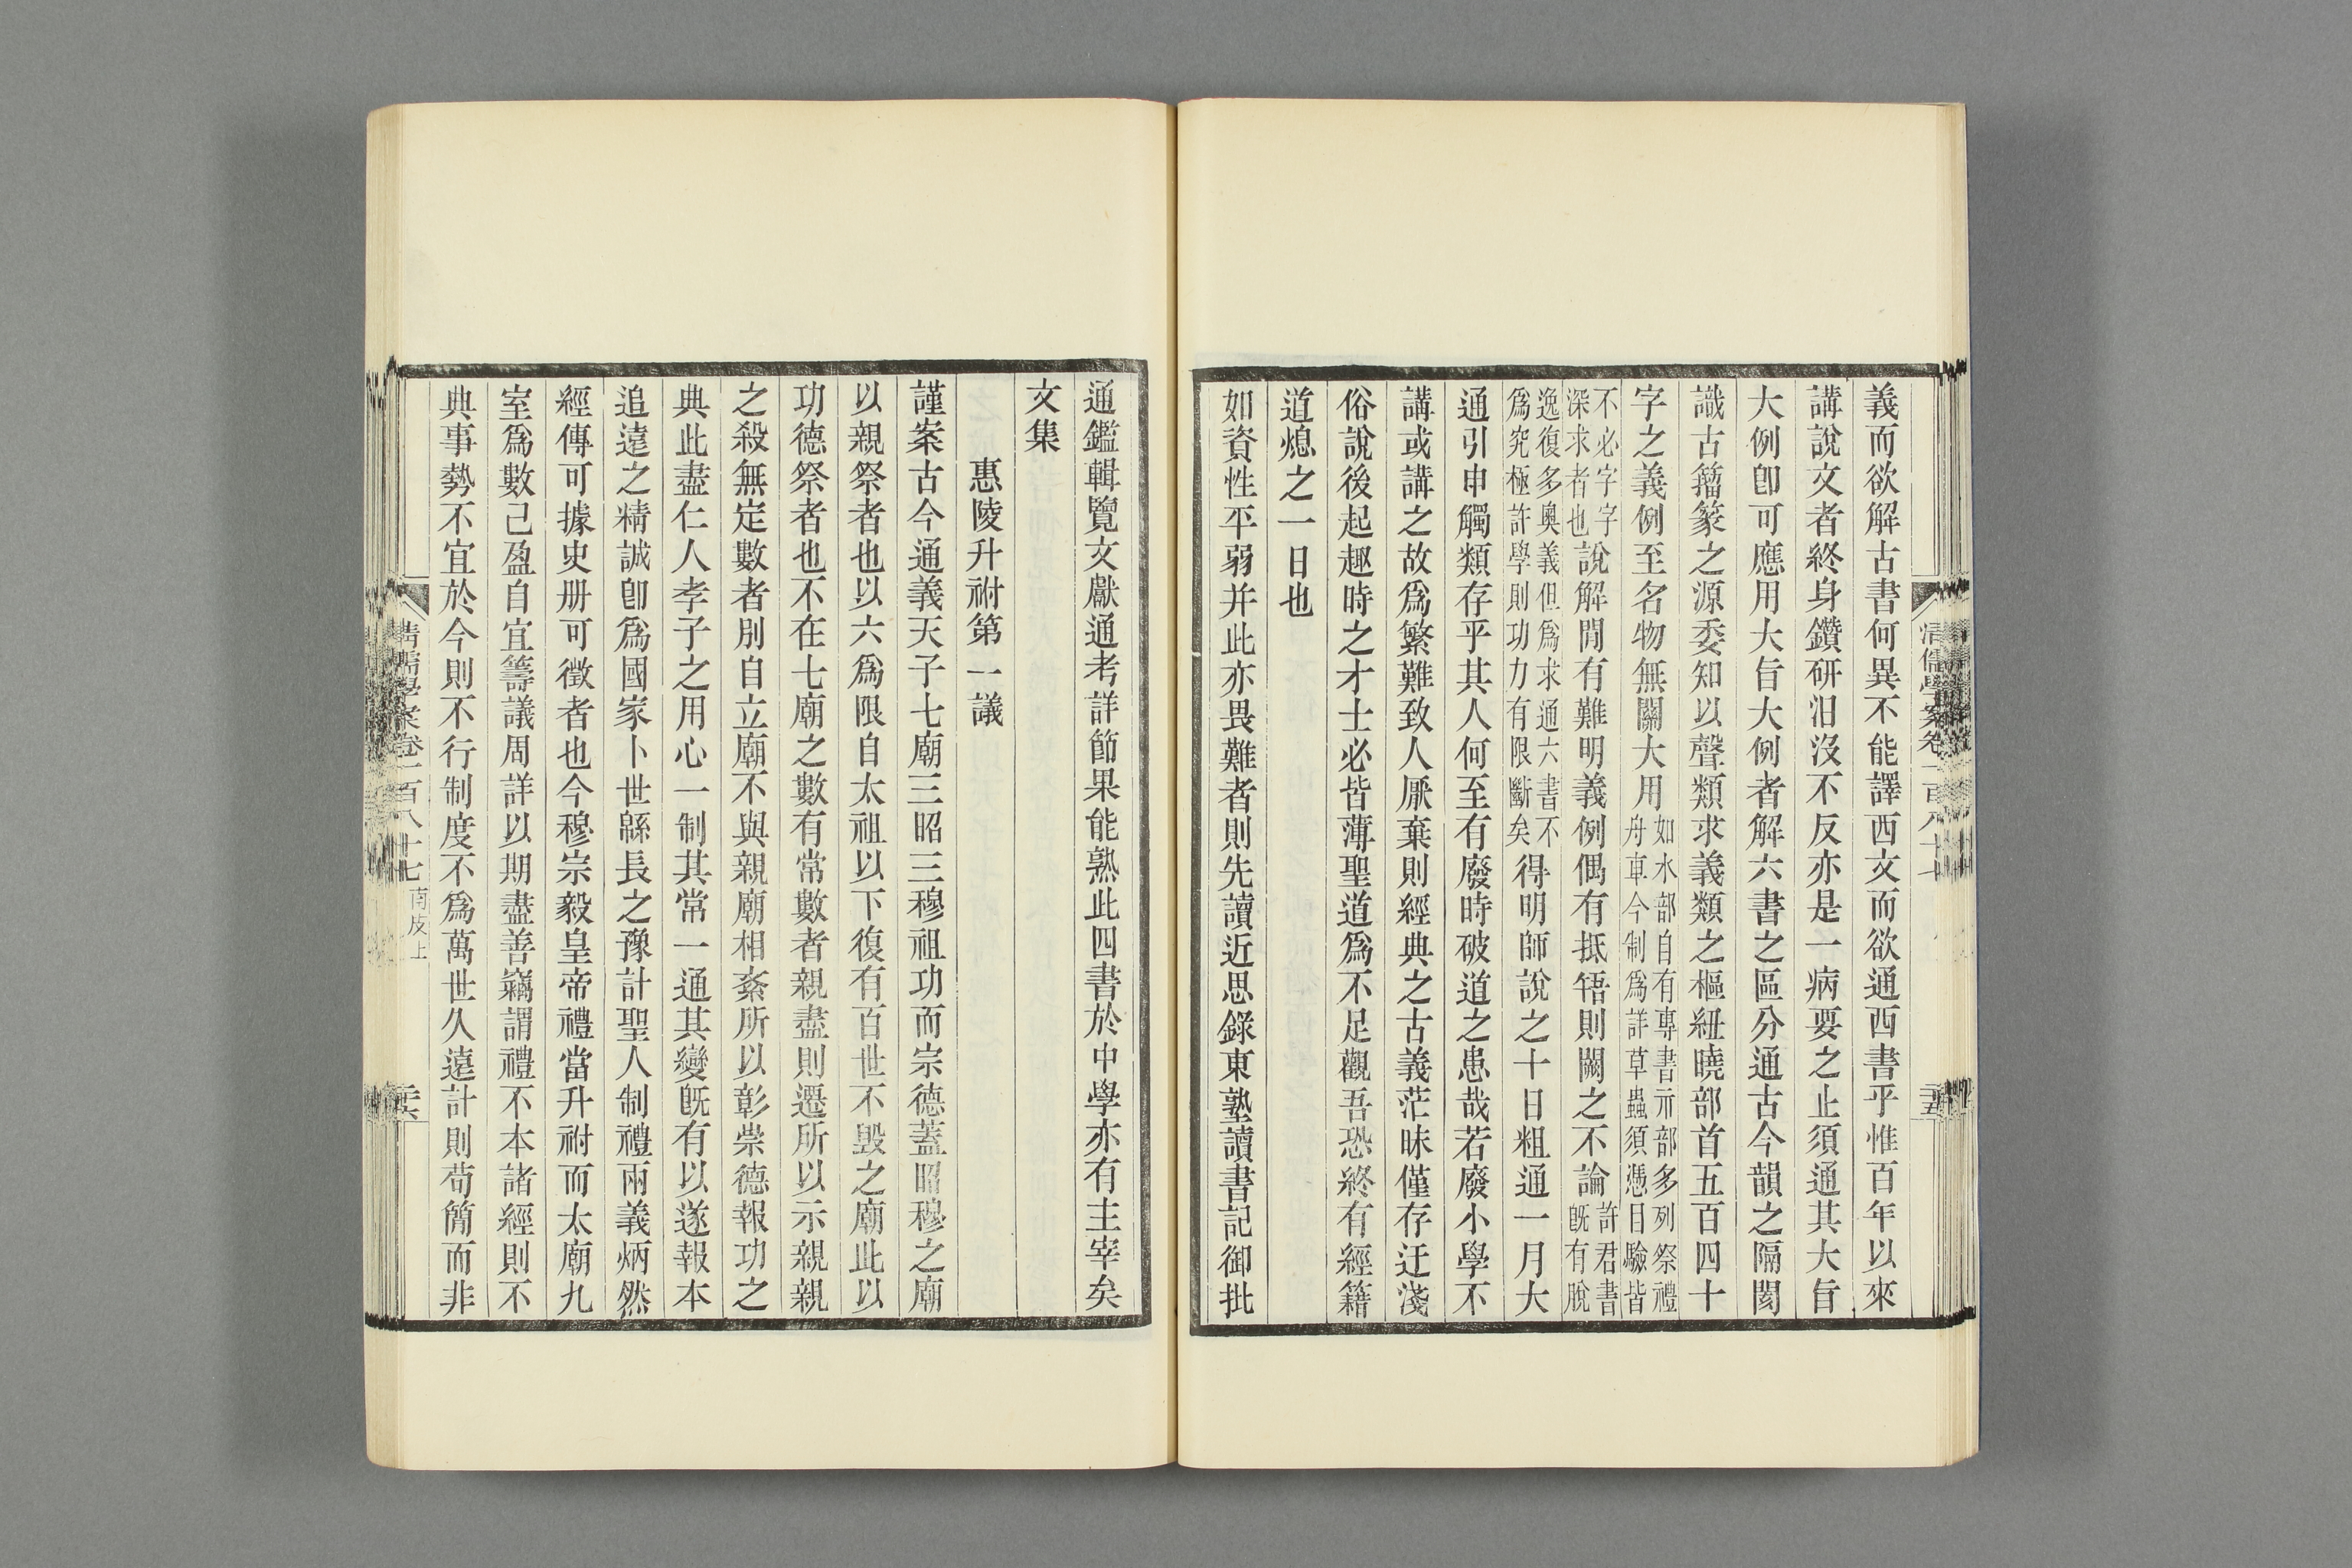 義而欲解古書何異不能譯西文而欲通西書乎惟百年以來
講說文者終身鑽研汨沒不反亦是一病要之止須通其大旨
大例卽可應用大旨大例者解六書之區分通古今韻之隔閡
識古籀篆之源委知以聲類求義類之樞紐曉部首五百四十
字之義例至名物無關大用如水部自有專書示部多列祭禮
舟車今制爲詳草蟲須憑目驗皆
不必字字
深求者也說解閒有難明義例偶有抵牾則闕之不論許君書
旣有脫
逸復多奧義但爲求通六書不
爲究極許學則功力有限斷矣得明師說之十日粗通一月大
通引申觸類存乎其人何至有廢時破道之患哉若廢小學不
講或講之故爲繁難致人厭棄則經典之古義茫昧僅存迂淺
俗說後起趣時之才士必皆薄聖道爲不足觀吾恐終有經籍
道熄之一日也
如資性平弱并此亦畏難者則先讀近思錄東塾讀書記御批
通鑑輯覽文獻通考詳節果能熟此四書於中學亦有主宰矣
文集
惠陵升祔第一議
謹案古今通義天子七廟三昭三穆祖功而宗德蓋昭穆之廟
以親祭者也以六爲限自太祖以下復有百世不毀之廟此以
功德祭者也不在七廟之數有常數者親盡則遷所以示親親
之殺無定數者別自立廟不與親廟相紊所以彰崇德報功之
典此盡仁人孝子之用心一制其常一通其變旣有以遂報本
追遠之精誠卽爲國家卜世緜長之豫計聖人制禮兩義炳然
經傳可據史册可徵者也今穆宗毅皇帝禮當升祔而太廟九
室爲數已盈自宜籌議周詳以期盡善竊謂禮不本諸經則不
典事勢不宜於今則不行制度不爲萬世久遠計則苟簡而非
清儒學案卷一百八十七
南皮上